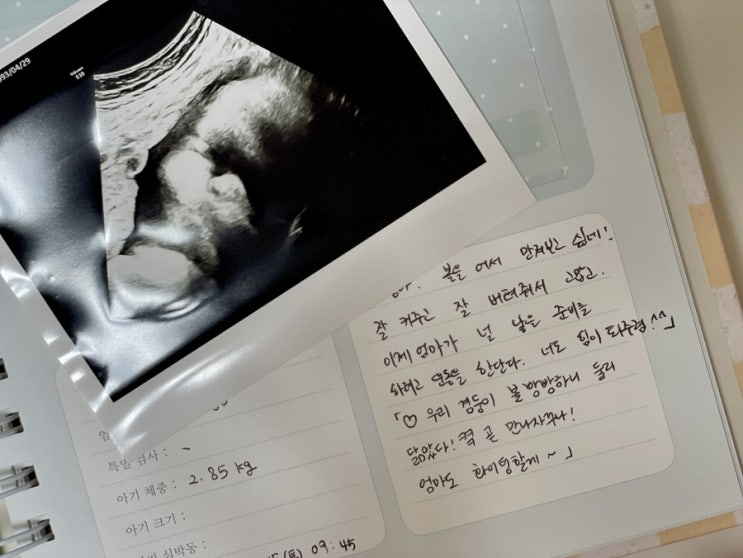 93/04/29
볼을 어서 만져보고 싶네!
잘 커주고 잘 버텨줘서 고맙고.
이제 엄마가 널 낳을 준비를
하려고 운동을 한단다. 너도 힘이 되주렴^^」
「♡ 우리 겸둥이 볼빵빵하니 둘리
닮았다! 켝 곧 만나자꾸나!
엄마도 화이팅할게~」
특별 검사 :
아기 체중 : 2.85 kg
아기 크기 :
심박동 :
(토) 09:45